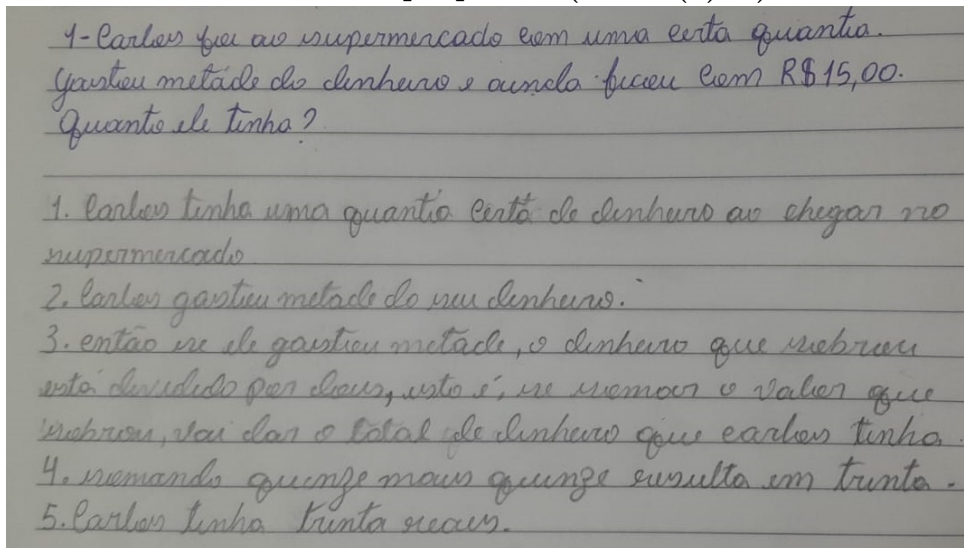 1-Carlos foi ao supermercado com uma certa quantia.
Gastou metade do dinheiro e ainda ficou com R$15,00.
Quanto ele tinha?
1. Carlos tinha uma quantia certa de dinheiro ao chegar no
supermercado
2. Carlos gastou metade do seu dinheiro.
3. então se ele gastou metade, o dinheiro que sobrou
está dividido por dois, isto é, se somar o valor que
sobrou, vai dar o total de dinheiro que carlos tinha.
4. somando quinze mais quinze resulta em trinta.
5. Carlos tinha trinta reais.